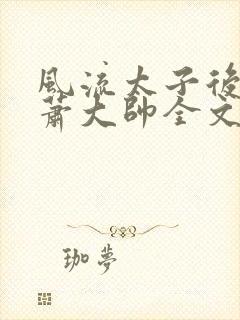 風流太子後
蕭大帥全文
珈夢